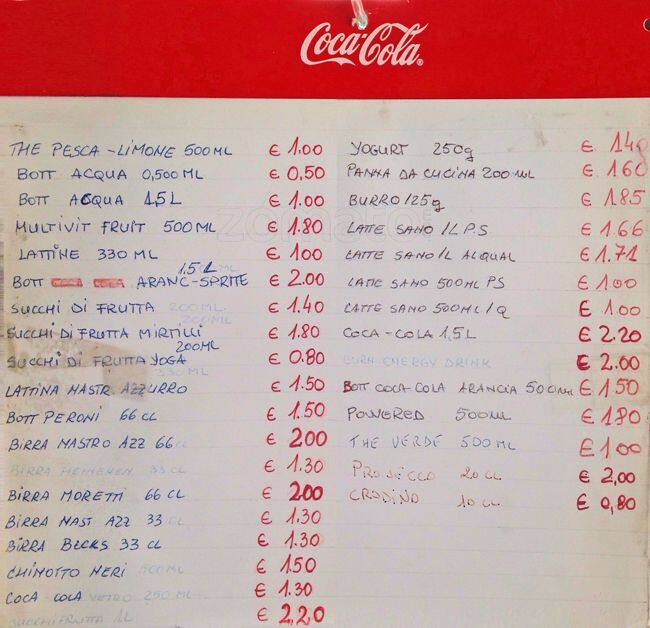 Coca-Cola
THE PESCA - LIMONE 500ML € 1.00
BOTT ACQUA 0,500ML € 0,50
BOTT ACQUA 1.5L € 1.00
MULTIVIT FRUIT 500ML € 1.80
LATTINE 330 ML € 100
1.5 L
BOTT ARANC-SPRITE € 2.00
SUCCHI DI FRUTTA 200ML € 1.40
200ML
SUCCHI DI FRUTTA MIRTILLI € 1.80
200ML
SUCCHI DI FRUTTA YOGA € 0.80
330ML
LATTINA MASTR. AZZURRO € 1.50
BOTT PERONI 66 CL € 1.50
BIRRA MASTRO AZZ 66 € 200
BIRRA HEINENEN 33 CL € 1.30
BIRRA MORETTI 66 CL € 200
BIRRA MAST AZZ 33 € 1.30
BIRRA BECKS 33 CL € 1.30
CHINOTTO NERI 500ML € 150
COCA-COLA VETRO 250 ML € 1.30
SUCCHI FRUTTA 1L € 2,20
YOGURT 250g € 14g
PANNA DA CUCINA 200 ML € 160
BURRO 125g € 1.85
LATTE SANO 1L P.S € 1.66
LATTE SANO 1L ALQUAL € 1.71
LATTE SANO 500ML PS € 1.00
LATTE SANO 500ML 1Q € 1.00
COCA-COLA 1,5L € 2.20
BURN ENERGY DRINK € 2.00
BOTT COCA-COLA ARANCIA 500ML € 1.50
POWERED 500ML € 1.80
THE VERDE 500ML € 1.00
PROSECCO 20 CL € 2,00
CRODINO 10 CL € 0,80
zomato